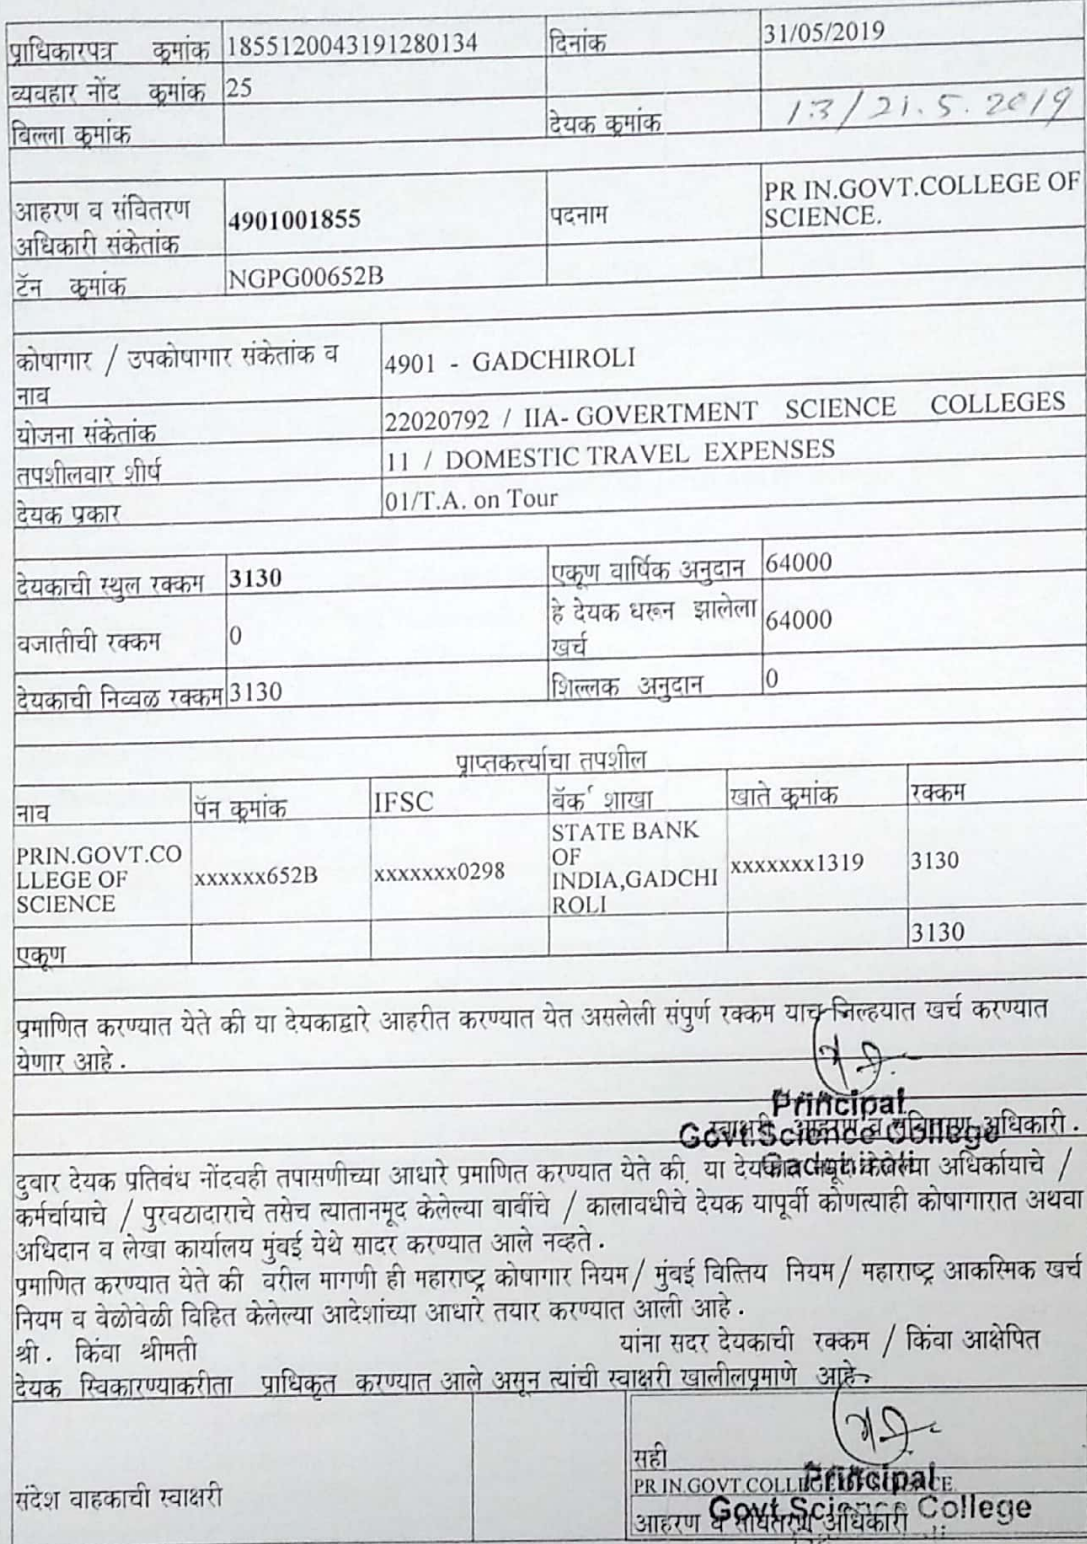 प्राधिकारपत्र क्रमांक 1855120043191280134 दिनांक 31/05/2019
व्यवहार नोंद क्रमांक 25
बिल्ला क्रमांक देयक क्रमांक 13/21.5.2019
आहरण व संवितरण अधिकारी संकेतांक 4901001855 पदनाम PR IN.GOVT.COLLEGE OF SCIENCE.
टॅन क्रमांक NGPG00652B
कोषागार / उपकोषागार संकेतांक व नाव 4901 - GADCHIROLI
योजना संकेतांक 22020792 / IIA- GOVERTMENT SCIENCE COLLEGES
तपशीलवार शीर्ष 11 / DOMESTIC TRAVEL EXPENSES
देयक प्रकार 01/T.A. on Tour
देयकाची स्थुल रक्कम 3130 एकूण वार्षिक अनुदान 64000
वजातीची रक्कम 0 हे देयक धरून झालेला खर्च 64000
देयकाची निव्वळ रक्कम 3130 शिल्लक अनुदान 0
प्राप्तकर्त्याचा तपशील
नाव पॅन क्रमांक IFSC बॅक शाखा खाते क्रमांक रक्कम
PRIN.GOVT.CO
LLEGE OF
SCIENCE
xxxxxx652B xxxxxxx0298
STATE BANK
OF
INDIA,GADCHI
ROLI
xxxxxxx1319 3130
एकूण 3130
प्रमाणित करण्यात येते की या देयकाद्वारे आहरीत करण्यात येत असलेली संपुर्ण रक्कम याच जिल्हयात खर्च करण्यात
येणार आहे.
Principal
Govt.Science College
Gadchiroli
स्वाक्षरी आहरण व संवितरण अधिकारी.
दुबार देयक प्रतिबंध नोंदवही तपासणीच्या आधारे प्रमाणित करण्यात येते की, या देयकात नमूद केलेल्या अधिर्कायाचे /
कर्मर्चायाचे / पुरवठादाराचे तसेच त्यातानमूद केलेल्या बाबींचे / कालावधीचे देयक यापूर्वी कोणत्याही कोषागारात अथवा
अधिदान व लेखा कार्यालय मुंबई येथे सादर करण्यात आले नव्हते.
प्रमाणित करण्यात येते की वरील मागणी ही महाराष्ट्र कोषागार नियम/ मुंबई वित्तिय नियम/ महाराष्ट्र आकस्मिक खर्च
नियम व वेळोवेळी विहित केलेल्या आदेशांच्या आधारे तयार करण्यात आली आहे.
श्री. किंवा श्रीमती यांना सदर देयकाची रक्कम / किंवा आक्षेपित
देयक स्विकारण्याकरीता प्राधिकृत करण्यात आले असून त्यांची स्वाक्षरी खालीलप्रमाणे आहे-
सही
PR IN.GOVT COLLEGE
Principal
संदेश वाहकाची स्वाक्षरी
Govt.Science College
आहरण व संवितरण अधिकारी